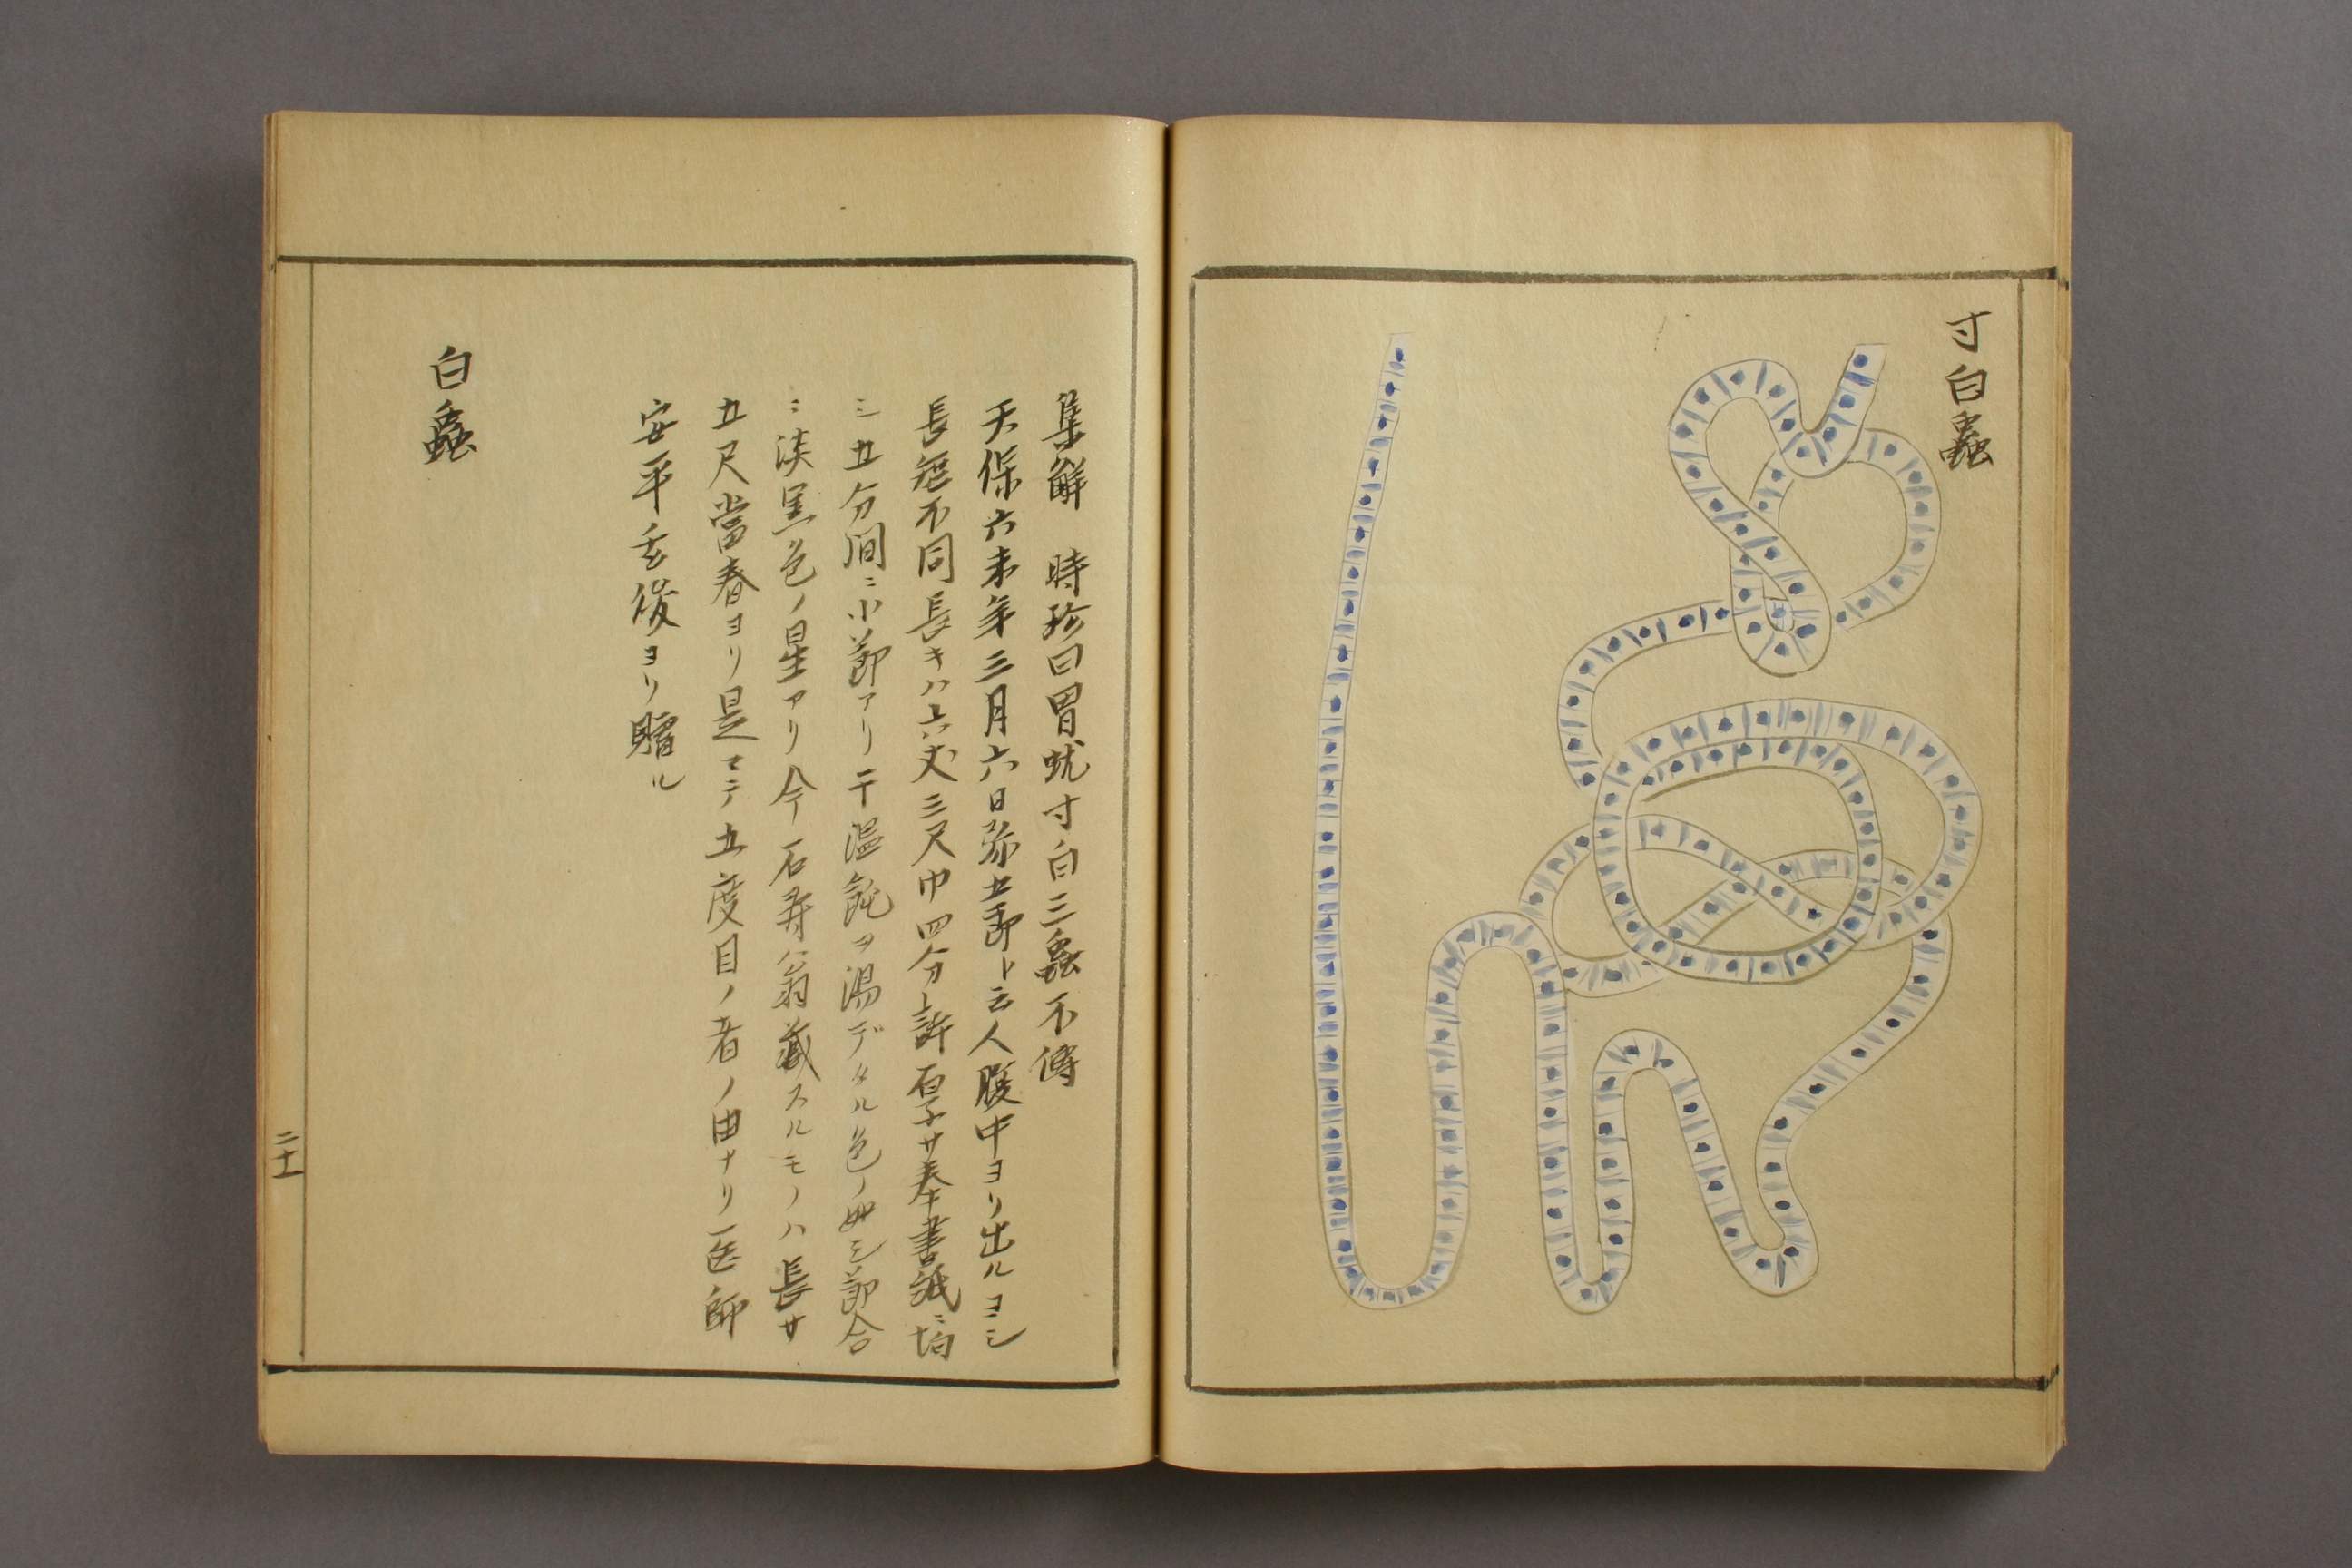 寸白蟲
集解 時珍曰胃蚘寸白三蟲不傳
天保六未年三月六日弥五郎ト云人腹中ヨリ出ルヨシ
長短不同長キハ六丈三尺巾四分許厚サ奉書紙ニ均
シ五分間ニ小節アリ干温飩ヲ湯デタル色ノ如シ節合
ニ淡黒色ノ星アリ今石寿翁蔵スルモノハ長サ
五尺當春ヨリ是マテ五度目ノ者ノ由ナリ医師
安平 俊ヨリ贈ル
白蟲
二十一